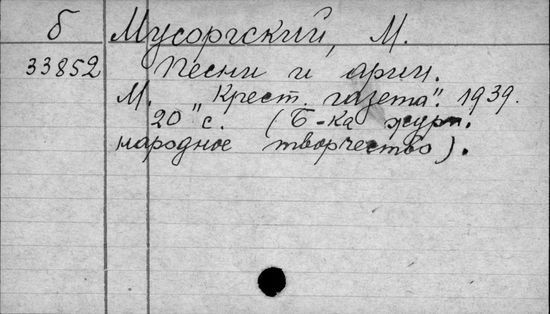 б Мусоргский, М.
33852 Песни и арии.
М. "Крест. газета". 1939.
20 с. (Б-ка журн.
народное творчество).